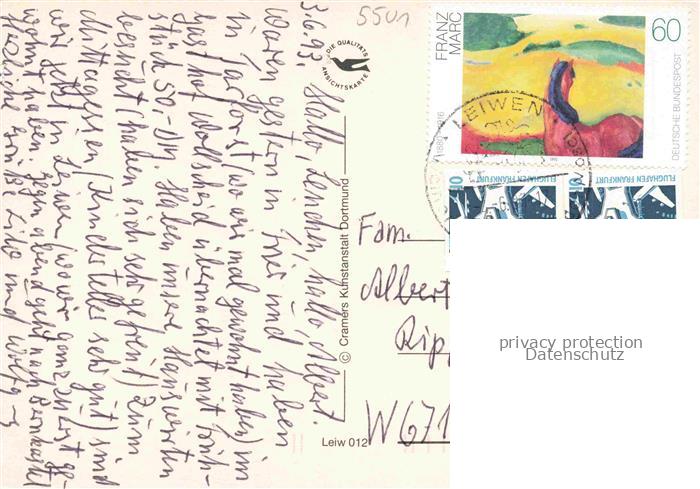 5501
3.6.93. Hallo, Lenchen, hallo, Albert.
Waren gestern in Trier und haben
in Tarforst (wo wir mal gewohnt haben) im
Gasthof Wollscheid übernachtet mit Früh-
stück 50,- DM. Haben unsere Hauswirten
besucht (haben sich sehr gefreut) zum
Mittagessen, Kinderteller sehr gut) sind
wir jetzt in Leiwen, wo wir ganz zuerst ge-
wohnt haben. Gegen abend geht's nach Bernkastel
Herzliche Grüße und Wolfgang
DIE QUALITÄTS
ANSICHTSKARTE
© Cramers Kunstanstalt Dortmund
Leiw 012
FRANZ
MARC
1880-1916
60
DEUTSCHE BUNDESPOST
LEIWEN
FLUGHAFEN FRANKFURT
10
FLUGHAFEN FRANKFURT
10
Fam.
Albert
Ripp
W 671
privacy protection
Datenschutz